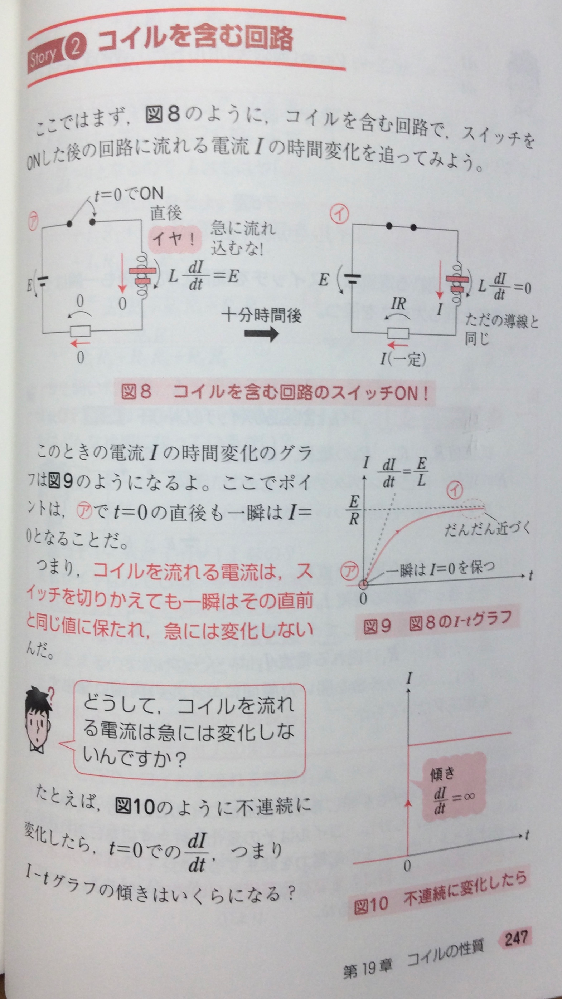 Story 2 コイルを含む回路
ここではまず，図8のように，コイルを含む回路で，スイッチを
ONした後の回路に流れる電流Iの時間変化を追ってみよう。
㋐
t=0でON
直後
イヤ！
急に流れ
込むな！
E
0
L dI/dt = E
0
0
十分時間後
㋑
E
I
L dI/dt = 0
ただの導線と
同じ
IR
I(一定)
図8 コイルを含む回路のスイッチON！
このときの電流Iの時間変化のグラ
フは図9のようになるよ。ここでポイ
ントは，㋐でt=0の直後も一瞬はI=
0となることだ。
つまり，コイルを流れる電流は，ス
イッチを切りかえても一瞬はその直前
と同じ値に保たれ，急には変化しない
んだ。
I
dI/dt = E/L
㋑
E/R
だんだん近づく
㋐
一瞬はI=0を保つ
0
t
図9 図8のI-tグラフ
?
どうして，コイルを流れ
る電流は急には変化しな
いんですか？
たとえば，図10のように不連続に
変化したら，t=0でのdI/dt，つまり
I-tグラフの傾きはいくらになる？
I
傾き
dI/dt = ∞
0
t
図10 不連続に変化したら
第19章 コイルの性質 247